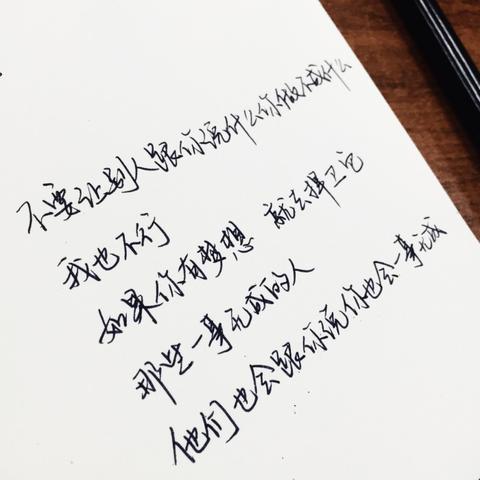 不要让别人跟你说什么你做不成什么
我也不行
如果你有梦想 就去捍卫它
那些一事无成的人
他们也会跟你说你也会一事无成